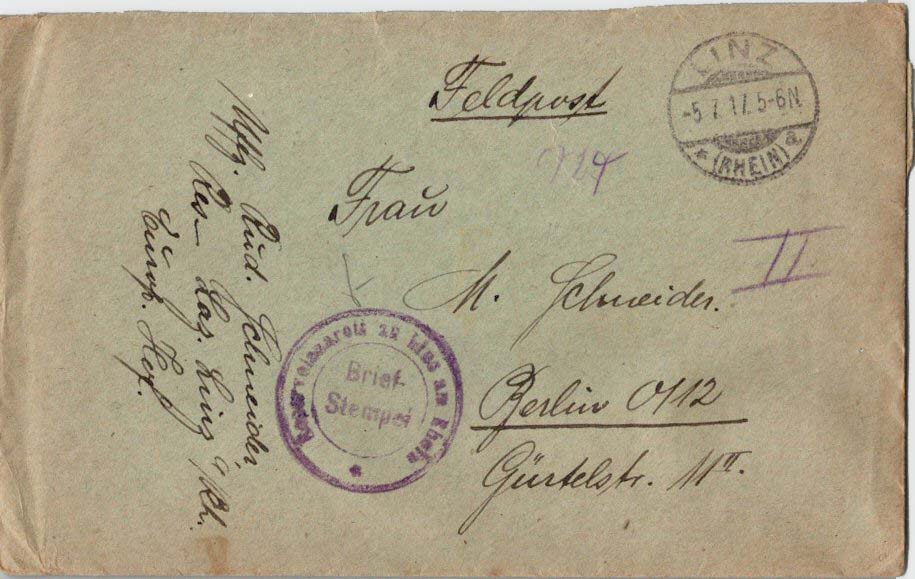 Feldpost
LINZ
-5.7.17.5-6N.
* (RHEIN) a
Frau
II
M. Schneider.
Berlin O112
Gürtelstr. 11II.
Reservelazarett zu Linz am Rhein
Brief-
Stempel
*
Rud. Schneider
Res. Laz. Linz a/Rh.